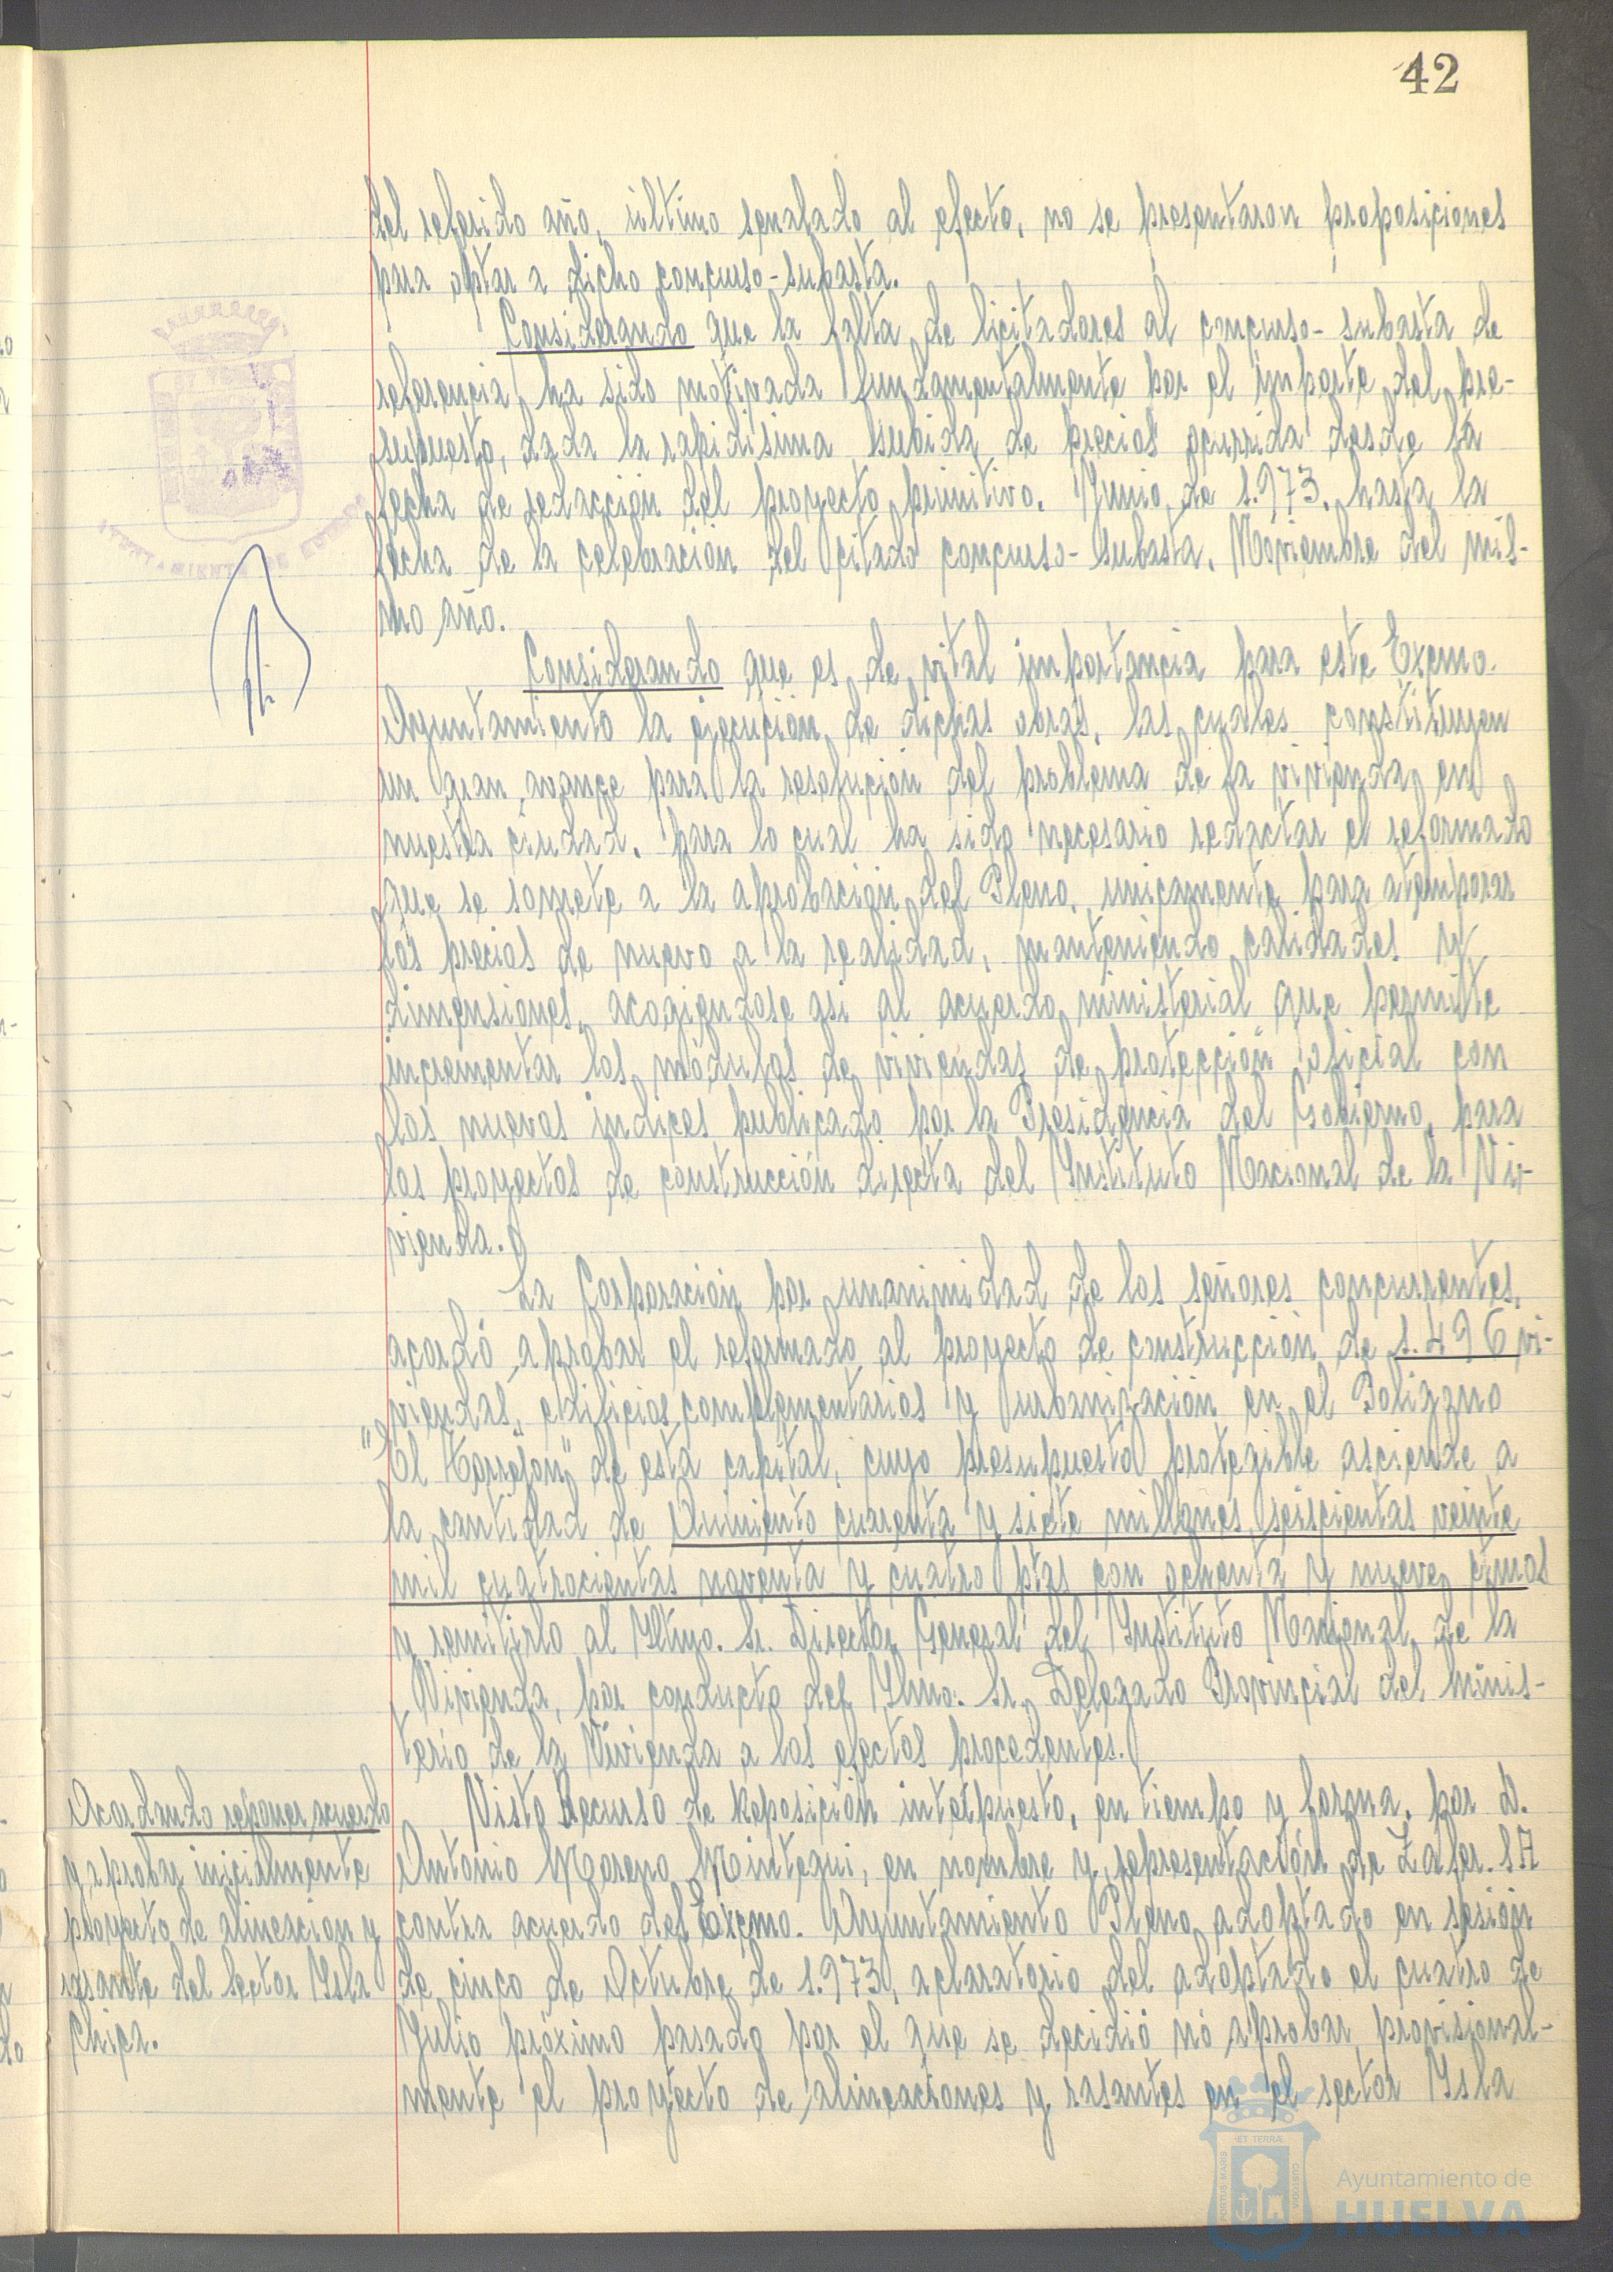 42
del referido año, último senalado al efecto, no se presentaron proposiciones
para optar a dicho concurso-subasta.
Considerando que la falta de licitadores al concurso-subasta de
referencia, ha sido motivada fundamentalmente por el importe del pre-
supuesto, dada la rapidisima subida de precios ocurrida desde la
fecha de redacción del proyecto primitivo, Junio de 1.973, hasta la
fecha de la celebración del citado concurso-subasta, Noviembre del mis-
mo año.
Considerando que es de vital importancia para este Excmo.
Ayuntamiento la ejecución de dichas obras, las cuales constituyen
un gran avance para la resolución del problema de la vivienda en
nuestra ciudad, para lo cual ha sido necesario redactar el reformado
que se somete a la aprobación del Pleno, unicamente para atemporar
los precios de nuevo a la realidad, manteniendo calidades y
dimensiones, acogiendose asi al acuerdo ministerial que permite
incrementar los módulos de viviendas de protección oficial con
los nuevos indices publicado por la Presidencia del Gobierno, para
los proyectos de construcción directa del Ynstituto Nacional de la Vi-
vienda.
La Corporación por unanimidad de los señores concurrentes,
acordó aprobar el reformado al proyecto de construcción de 1.496 vi-
viendas, edificios complementarios y urbanización en el Poligono
"El Torrejon" de esta capital, cuyo presupuesto protegible asciende a
la cantidad de Quiniento cuarenta y siete millones seiscientas veinte
mil cuatrocientas noventa y cuatro ptas con ochenta y nueve ctmos
y remitirlo al Yltmo. Sr. Director General del Ynstituto Nacional de la
Vivienda, por conducto del Yltmo. Sr. Delegado Provincial del Minis-
terio de la Vivienda a los efectos procedentes.
Acordando reponer acuerdo
y aprobar inicialmente
proyecto de alineacion y
rasante del Sector Ysla
Chica.
Visto Recurso de Reposición interpuesto, en tiempo y forma, por D.
Antonio Moreno Mintegui, en nombre y representación de Zafer. S.A
contra acuerdo del Excmo. Ayuntamiento Pleno adoptado en sesión
de cinco de Octubre de 1.973, aclaratorio del adoptado el cuatro de
Julio próximo pasado por el que se decidió no aprobar provisional-
mente el proyecto de alineaciones y rasantes en el sector Ysla
Ayuntamiento de
HUELVA